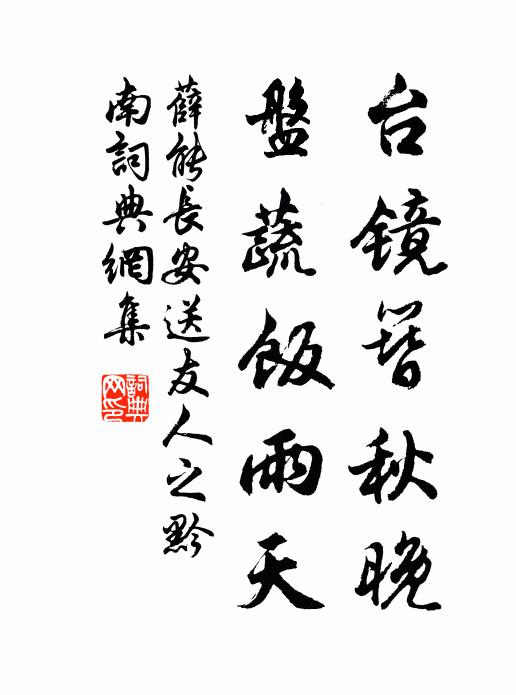 台鏡簪秋晚
盤蔬飯雨天
薛能長安送友人之黔
南詞典網集
詞典网印